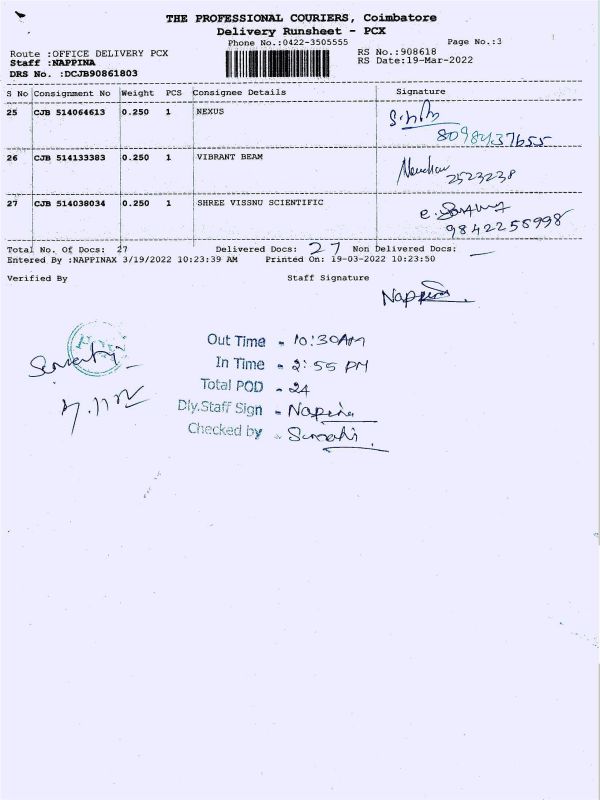 THE PROFESSIONAL COURIERS, Coimbatore
Delivery Runsheet - PCX
Phone No.:0422-3505555 Page No.:3
Route :OFFICE DELIVERY PCX RS No.:908618
Staff :NAPPINA RS Date:19-Mar-2022
DRS No. :DCJB90861803
S No Consignment No Weight PCS Consignee Details Signature
25 CJB 514064613 0.250 1 NEXUS
8098437655
26 CJB 514133383 0.250 1 VIBRANT BEAM
2523238
27 CJB 514038034 0.250 1 SHREE VISSNU SCIENTIFIC
9842256998
Total No. Of Docs: 27 Delivered Docs: 27 Non Delivered Docs: —
Entered By :NAPPINAX 3/19/2022 10:23:39 AM Printed On: 19-03-2022 10:23:50
Verified By Staff Signature
Nappina
Out Time - 10:30AM
In Time - 2:55 PM
Total POD - 24
Dly.Staff Sign - Napina
Checked by -